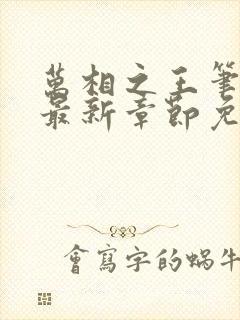 萬相之王筆
最新章節免
會寫字的蝸牛